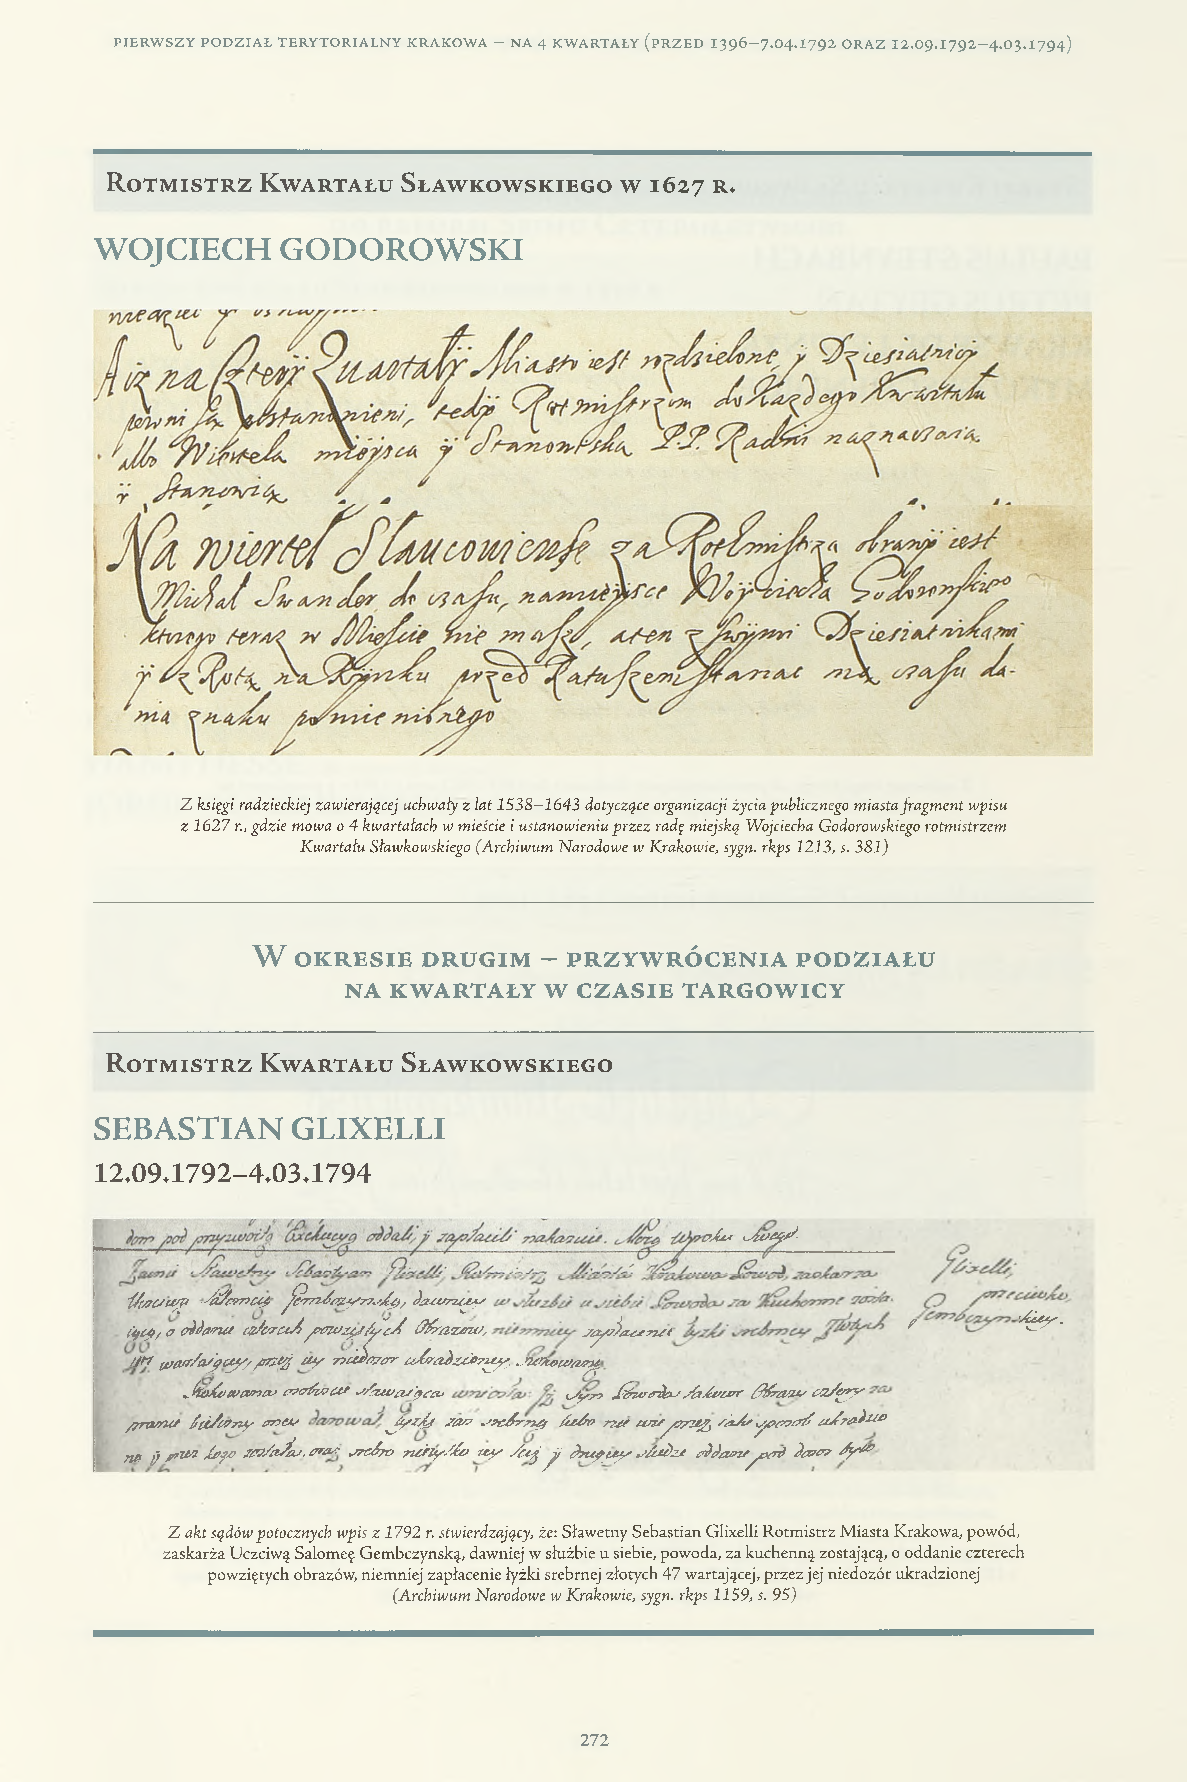 PIERWSZY PODZIAŁ TERYTORIALNY KRAKOWA – NA 4 KWARTAŁY (PRZED 1396–7.04.1792 ORAZ 12.09.1792–4.03.1794)
ROTMISTRZ KWARTAŁU SŁAWKOWSKIEGO W 1627 R.
WOJCIECH GODOROWSKI
A iz na Cztery Quartały Miasto iest rozdzielone, y Dziesiatnicy
pewni są postanowieni, tedy Rotmistrzom do Kazdego Kwartału
albo Wiertela mieysca y Stanowiska P.P. Radni naznaczaią
y Stanowią
Na wiertel Slauconiense za Rothmistrza obrany iest
Michal Swander do czasu, na mieysce Woyciecha Godorowskiego
ktorego teraz w Mieście nie masz, a ten z swymi Dziesiatnikami
y z Rotą na Rynku przed Ratuszem stanac ma czasu da-
nia znaku pomienionego
Z księgi radzieckiej zawierającej uchwały z lat 1538–1643 dotyczące organizacji życia publicznego miasta fragment wpisu
z 1627 r., gdzie mowa o 4 kwartałach w mieście i ustanowieniu przez radę miejską Wojciecha Godorowskiego rotmistrzem
Kwartału Sławkowskiego (Archiwum Narodowe w Krakowie, sygn. rkps 1213, s. 381)
W OKRESIE DRUGIM – PRZYWRÓCENIA PODZIAŁU
NA KWARTAŁY W CZASIE TARGOWICY
ROTMISTRZ KWARTAŁU SŁAWKOWSKIEGO
SEBASTIAN GLIXELLI
12.09.1792–4.03.1794
dom pod przyzwoitą Exekucyą oddali, y zapłacili nakazuie. Mocą Wyroku Swego.
Sławetny Sebastyan Glixelli, Rotmistrz Miasta Krakowa Powod, zaskarza
Uczciwą Salomeią Gembczynską, dawniey w służbie u siebie Powoda za Kuchenną zosta-
iącą, o oddanie czterech powziętych Obrazow, niemniey zapłacenie łyzki srebrney Złotych
47 wartaiącey, przez iey niedozor ukradzioney. Rokowaną
Glixelli,
przeciwko,
Gembczynskiey.
Rokowana osobiscie stawaiąca wniosła: Iz Syn Powoda takowe Obrazy cztery za
pranie bielizny oney darował, łyzka zas srebrna lubo nie wie przez iaki sposob ukradzio
na y przez kogo została, oraz srebro nietylko iey lecz y drugiey słudze oddane pod dozor było
Z akt sądów potocznych wpis z 1792 r. stwierdzający, że: Sławetny Sebastian Glixelli Rotmistrz Miasta Krakowa, powód,
zaskarża Uczciwą Salomeę Gembczynską, dawniej w służbie u siebie, powoda, za kuchenną zostającą, o oddanie czterech
powziętych obrazów, niemniej zapłacenie łyżki srebrnej złotych 47 wartającej, przez jej niedozór ukradzionej
(Archiwum Narodowe w Krakowie, sygn. rkps 1159, s. 95)
272